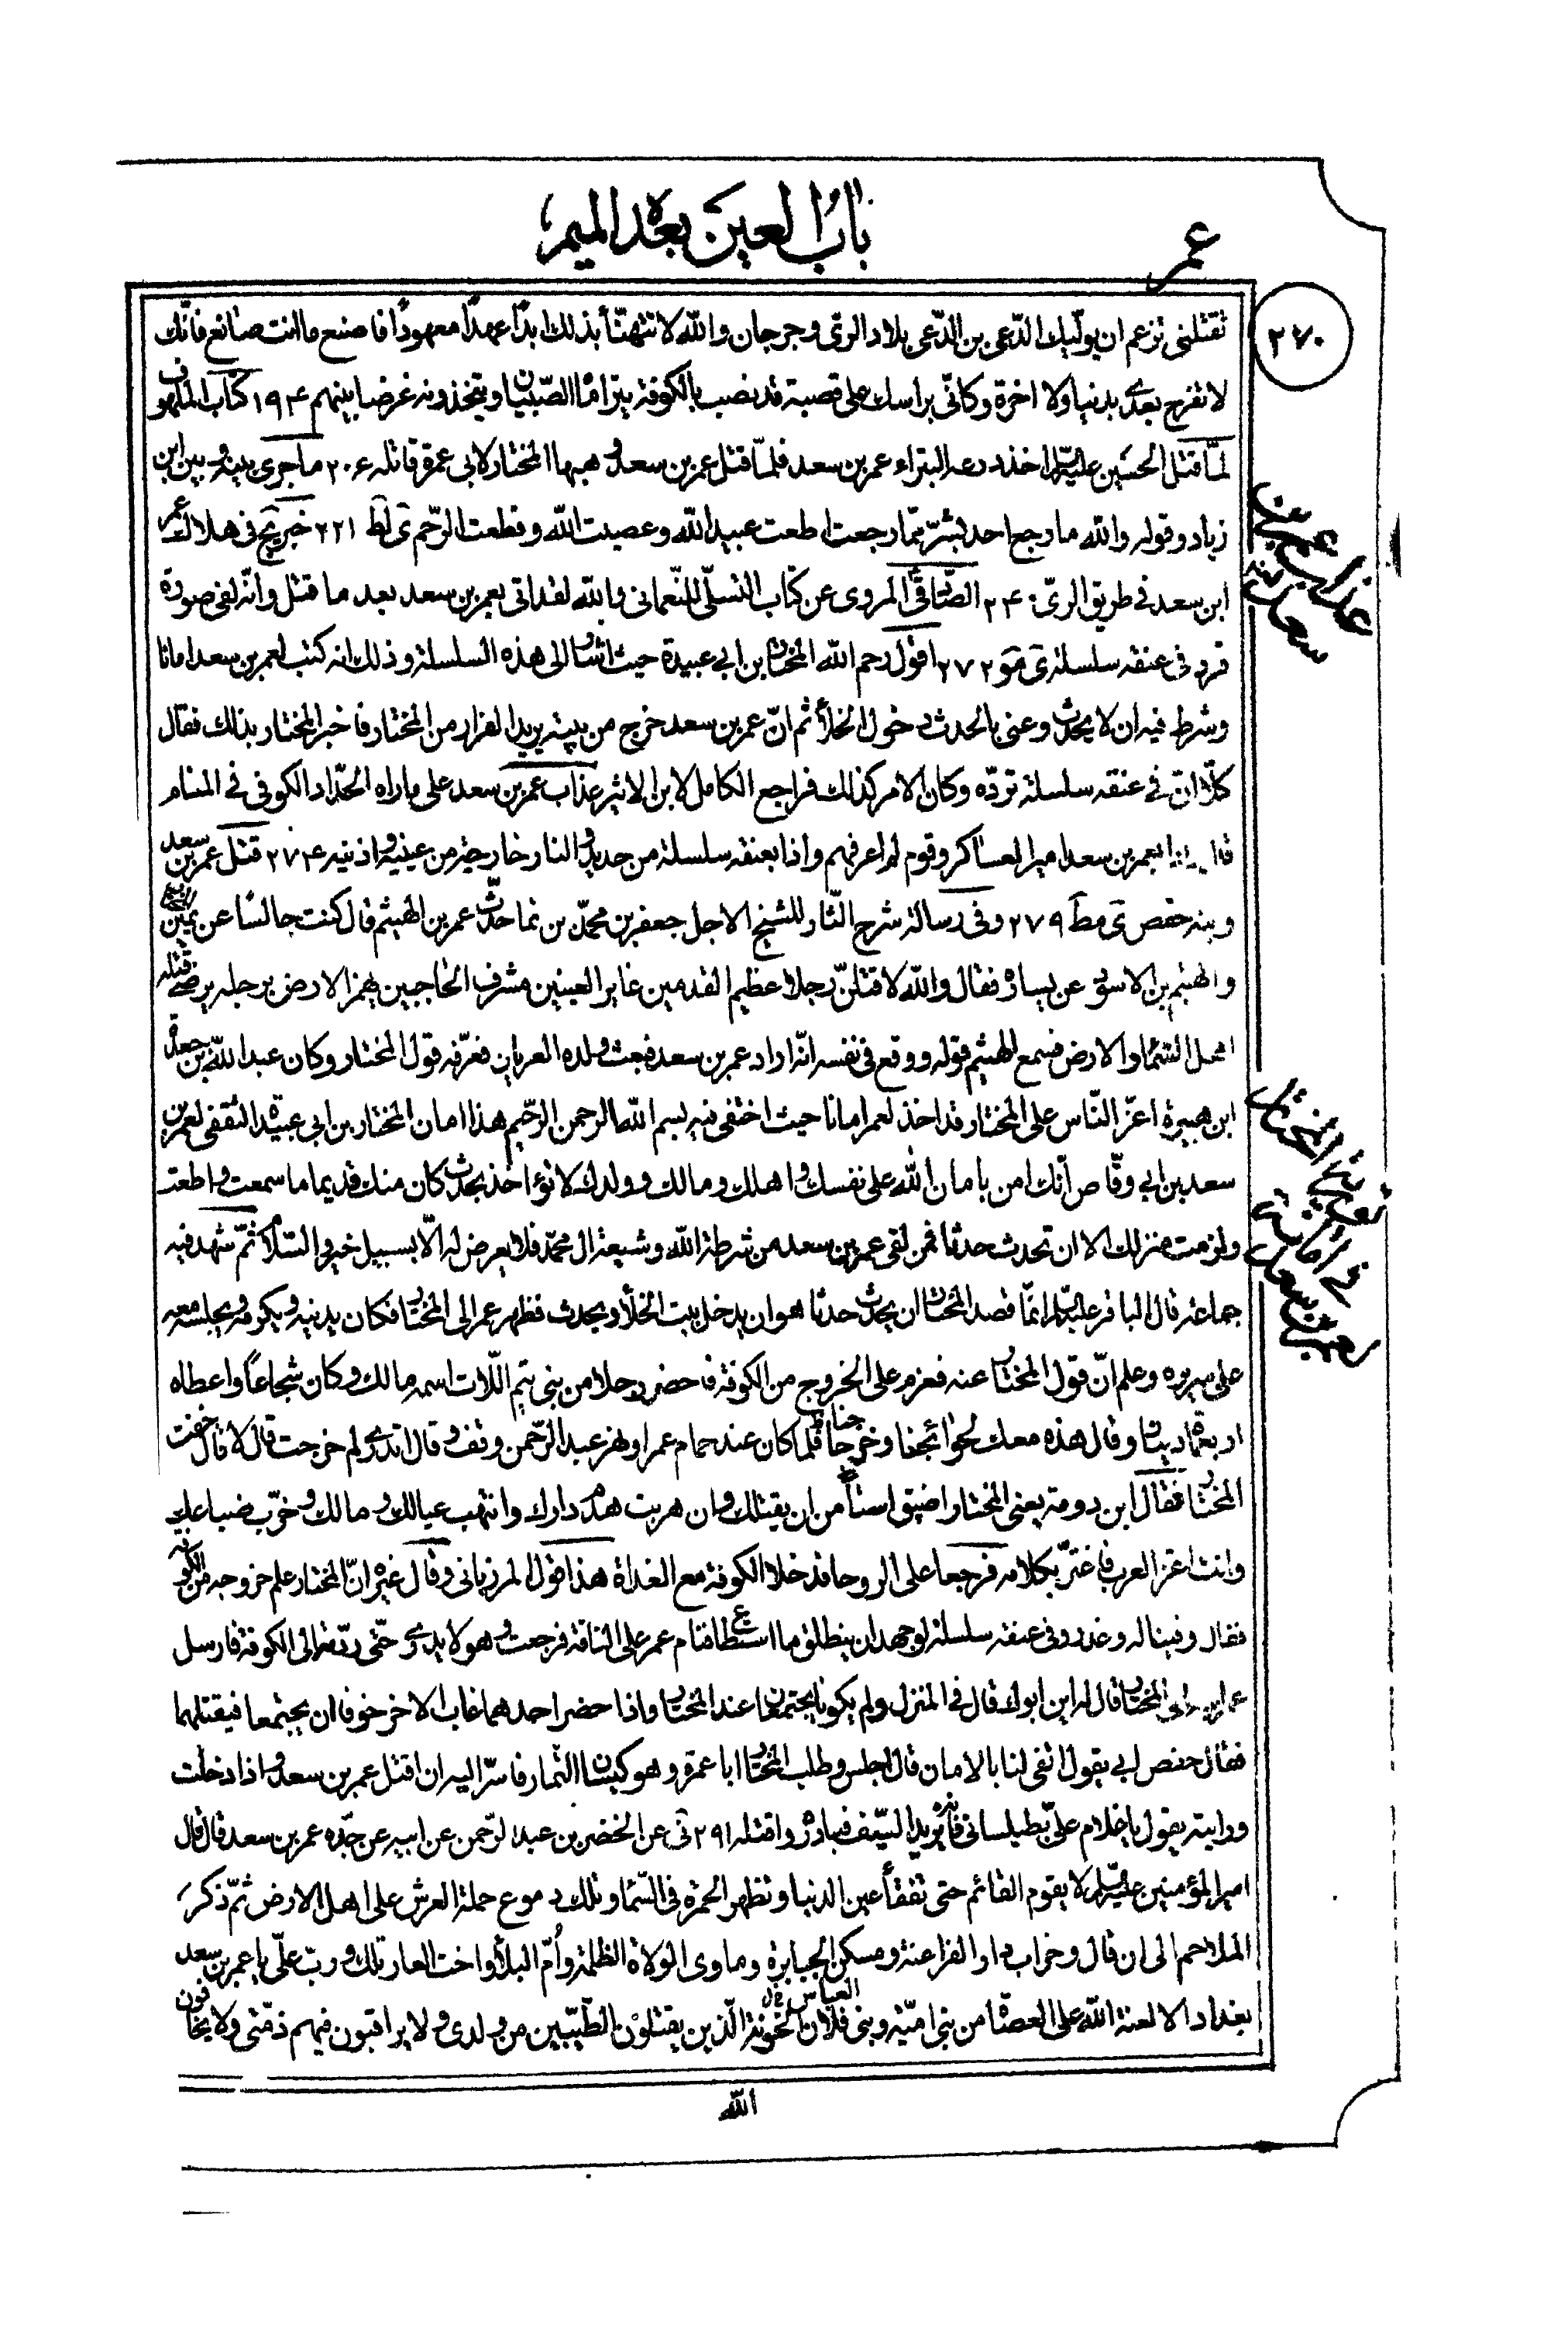 باب العين بعده الميم
عمر
٢٧٠
تقتلني تزعم ان يوليك الدّعي بن الدّعي بلاد الرّي وجرجان والله لا تتهنّأ بذلك ابدًا عهدًا معهودًا فاصنع ما انت صانع فانّك
لا تفرح بعدي بدنيا ولا اخرة وكانّي براسك على قصبة قد نصب بالكوفة يتراماه الصّبيان ويتخذونه غرضا بينهم ١٩٤ كتاب الملهوف
لمّا قتل الحسين عليه السلام اخذ درعه البتراء عمر بن سعد فلمّا قتل عمر بن سعد وهبها المختار لابي عمرة قاتله ع ٢٠ ما جرى بينه وبين ابن
زياد وقوله والله ما رجع احد بشرّ ممّا رجعت اطعت عبيد الله وعصيت الله وقطعت الرّحم ى لط ٢٢١ خبر مجيء في هلال عمر
ابن سعد في طريق الريّ ٢٤٠ الصّادقيّ المروي عن كتاب التسلّي للنّعماني والله لقد اتي بعمر بن سعد بعد ما قتل وانّه لفي صورة
قرد في عنقه سلسلة ى مو ٢٧٢ اقول رحم الله المختار بن ابي عبيدة حيث اشار الى هذه السلسلة وذلك انه كتب لعمر بن سعد امانا
وشرط فيه ان لا يحدث وعنى بالحدث دخول الخلأ ثم انّ عمر بن سعد خرج من بيته يريد الفرار من المختار فاخبر المختار بذلك فقال
كلّا انّ في عنقه سلسلة تردّه وكان الامر كذلك فراجع الكامل لابن الاثير عذاب عمر بن سعد على ما راه الحدّاد الكوفي في المنام
قال بعمر بن سعد امير العساكر وقوم لم اعرفهم واذا بعنقه سلسلة من حديد والنار خارجة من عينيه واذنيه ٢٧٤ قتل عمر بن سعد
وبنه حفص ى مط ٢٧٩ وفي رسالة شرح الثّار للشيخ الاجل جعفر بن محمّد بن نما حدّث عمر بن الهيثم قال كنت جالسًا عن يمين المختار
والهيثم بن الاسود عن يساره فقال والله لاقتلنّ رجلا عظيم القدمين غاير العينين مشرف الحاجبين يهمز الارض برجله يرضي قتله
اهل السّماء والارض فسمع الهيثم قوله ووقع في نفسه انّه اراد عمر بن سعد فبعث ولده العريان فعرّفه قول المختار وكان عبد الله بن جعدة
ابن هبيرة اعزّ النّاس على المختار قد اخذ لعمر امانا حيث اختفى فيه بسم الله الرحمن الرّحيم هذا امان المختار بن ابي عبيدة الثقفي لعمر بن
سعد بن ابي وقّاص انّك امن بامان الله على نفسك واهلك ومالك وولدك لا تؤاخذ بحدث كان منك قديما ما سمعت واطعت
ولزمت منزلك الا ان تحدث حدثا فمن لقي عمر بن سعد من شرطة الله وشيعة ال محمّد فلا يعرض له الّا بسبيل خير والسّلام ثمّ شهد فيه
جماعة قال الباقر عليه السلام انّما قصد المختار ان يحدث حدثا هو ان يدخل بيت الخلأ ويحدث فظهر عمر الى المختار فكان يدنيه ويكرمه ويجلسه معه
على سريره وعلم انّ قول المختار عنه فعزم على الخروج من الكوفة فاحضر رجلا من بني تيم اللّات اسمه مالك وكان شجاعًا واعطاه
اربعمائة دينار وقال هذه معك لحوائجنا وخرجا فلما كان عند حمام عمر او نهر عبد الرّحمن وقف وقال اتدري لم خرجت قال لا قال خفت
المختار فقال ابن دومة يعني المختار اضيق استاً من ان يقتلك وان هربت هدم دارك وانتهب عيالك ومالك وخرّب ضياعك
وانت اعز العرب فاغترّ بكلامه فرجعا على الروحا فدخلا الكوفة مع الغداة هذا قول المرزباني وقال غيره انّ المختار علم خروجه من الكوفة
فقال وفينا له وغدر وفي عنقه سلسلة لو جهد ان ينطلق ما استطاع فنام عمر على الناقة فرجعت وهو لا يدري حتّى ردّته الى الكوفة فارسل
عمر ابنه الى المختار قال له اين ابوك قال في المنزل ولم يكونا يجتمعان عند المختار واذا حضر احدهما غاب الاخر خوفا ان يجتمعا فيقتلهما
فقال حفص ابي يقول اتفي لنا بالامان قال اجلس وطلب المختار ابا عمرة وهو كيسان التمار فاسرّ اليه ان اقتل عمر بن سعد واذا دخلت
ورايته يقول يا غلام علىّ بطيلساني فانّه يريد السّيف فبادره واقتله ٢٩١ نى عن الخضر بن عبد الرّحمن عن ابيه عن جدّه عمر بن سعد قال قال
امير المؤمنين عليه السلام لا يقوم القائم حتى تفقأ عين الدنيا وتظهر الحمرة في السّماء وتلك دموع حملة العرش على اهل الارض ثمّ ذكر
الملاحم الى ان قال وخراب دار الفراعنة ومسكن الجبابرة وماوى الولاة الظلمة وأمّ البلأ واخت العار تلك وربّ علّي يا عمر بن سعد
بغداد الا لعنة الله على العصاة من بني اميّه وبني فلان العباس خ ل الخونة الّذين يقتلون الطيّبين من ولدي ولا يراقبون فيهم ذمّتي ولا يخافون
الله
عذاب عمر بن سعد لعنه
تورية المختار في امانه لعمر بن سعد